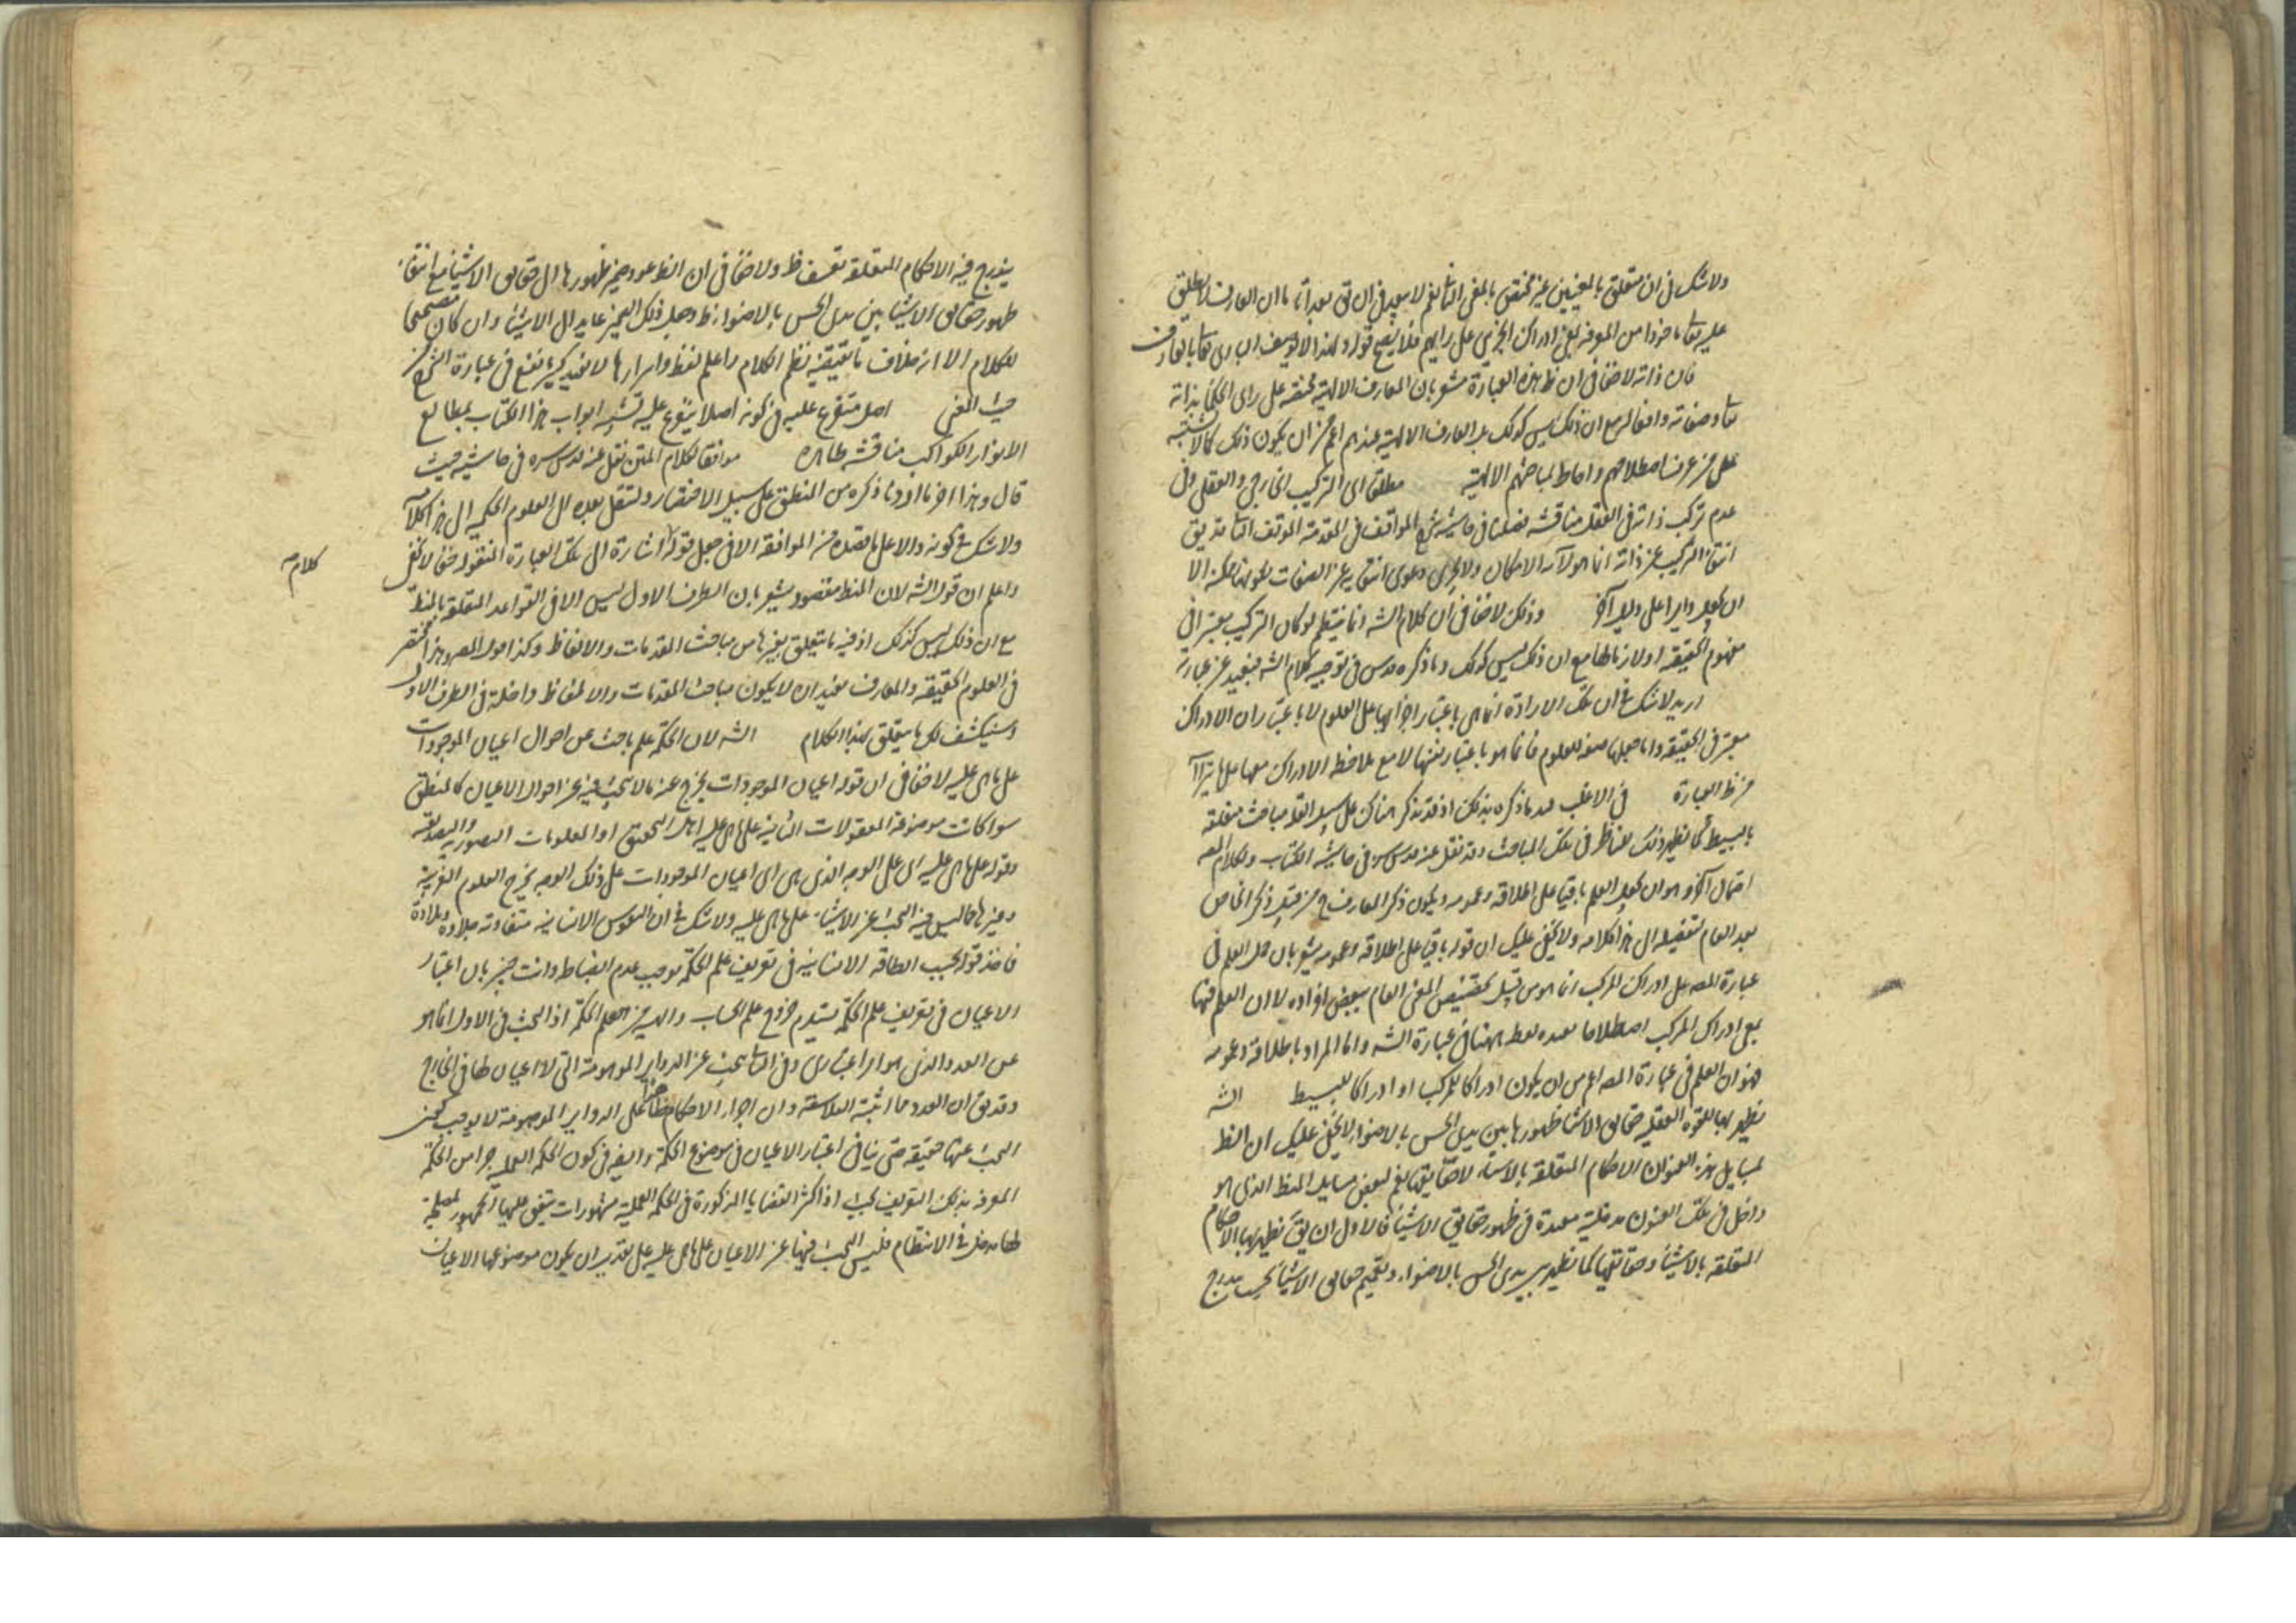 ولا شك في ان متعلق بالمعنيين غير مختص بالمعنى الثاني نعم لا يبعد في ان يق بعد اما ان العارف لا يطلق
عليه تعالى ماخوذا من المعرفة بمعنى ادراك الجزئي على رايهم فلا يصح قوله ولهذا لا يوصف الباري تعالى بالعارف
فان ذاته لا خفا في ان ظ هذه العبارة مشعر بان المعارف الالهية مختصة على راى الحكما بذاته
تعالى وصفاته وافعاله مع ان ذلك ليس كذلك بل المعارف الالهية عندهم اعم من ان يكون ذلك كما لا يشتبه
على من عرف اصطلاحهم واحاط بمباحثهم الالهية مطلقا اى التركيب الخارجي والعقلي وفي
عدم تركب ذاته في العقل مناقشة فصلناها في حاشية شرح المواقف في المقدمة الموقف الثاني قد يق
انتفا التركيب عن ذاته انما هو لانه الامكان ولا يجرى دعوى انتفايه عن الصفات لكونها ممكنة الا
ان يجعل دايرا على دليل آخر وذلك لا خفا في ان كلام الشه انما ينتظم لو كان التركيب معتبرا في
مفهوم الحقيقة او لازما لها مع ان ذلك ليس كذلك وما ذكره قدس في توجيه كلام الشه بعيد عن عبارته
اريد لا شك في ان تلك الارادة انما هي باعتبار اجرائها على العلوم لا باعتبار ان الادراك
معتبر في الحقيقة واما جعلها صفة للعلوم فانما هو باعتبار نفسها لا مع ملاحظة الادراك معها على ما يترا آ
من ظ العبارة في الاغلب قيد ما ذكره بذلك اذ قد تذكر هناك على سبيل القلة مباحث متعلقة
بالبسيط كما يظهر ذلك للناظر في تلك المباحث وقد نقل عنه قدس سره في حاشية الكتاب ولكلام المصه
احتمال آخر وهو ان يجعل العلم باقيا على اطلاقه وعمومه ويكون ذكر المعارف ح من قبيل ذكر الخاص
بعد العام تفضيلا الى هذا كلامه ولا يخفى عليك ان قوله باقيا على اطلاقه وعمومه يشعر بان حمل العلم في
عبارة المصه على ادراك المركب انما هو من قبيل تخصيص المعنى العام ببعض افراده لا ان العلم فيها
بمعنى ادراك المركب اصطلاحا هنا في عبارة الشه واما المراد باطلاقه وعمومه
فهو ان العلم في عبارة المصه اعم من ان يكون ادراكا للمركب او ادراكا للبسيط الشه
يظهر بها للقوة العقلية حقايق الاشيا ظهورها بين يدى الحس بالاضواء لا يخفى عليك ان الظ
لمسايل هذه العنوان الاحكام المتعلقة بالاشيا لا حقايقها نعم لبعض مسايل المنطق الذى هو
داخل في تلك العنوان مدخلية معدة في ظهور حقايق الاشيا فالاولى ان يق يظهر بها الاحكام
المتعلقة بالاشيا وحقايقها كما يظهر بين يدى الحس بالاضواء وتعميم حقايق الاشيا بحيث يندرج
يندرج فيه الاحكام المتعلقة تعسف ظ ولا خفا في ان الظ عود ضمير ظهورها الى حقايق الاشيا مع انتفاء
ظهور حقايق الاشيا بين يدى الحس بالاضواء ظ وجعل ذلك الضمير عايدا الى الاشيا وان كان مصححا
للكلام الا انه خلاف ما يقتضيه نظم الكلام واعلم لفظ وامرارها لا يفيد كثير نفع في عبارة الشرح من
حيث المعنى اصل متفرع عليه في كونه اصلا يتفرع عليه تشبيه ابواب هذا الكتاب بمطالع
الانوار الكواكب مناقشة ظاهرة موافقا لكلام المتن نقل عنه قدس سره في حاشيته حيث
قال وهذا اخر ما اردنا ذكره من المنطق على سبيل الاختصار ولننتقل بعده الى العلوم الحكمية الى هنا كلامه
ولا شك في كونه دالا على ما قصده من الموافقة الا في جعل قوله اشارة الى تلك العبارة المنقولة خفا لا يخفى
كلامه
واعلم ان قول الشه لان المنطق مقصود يشعر بان الطرف الاول ليس الا في القواعد المتعلقة بالمنطق
مع ان ذلك ليس كذلك اذ فيه ما يتعلق بغيرها من مباحث المقدمات والالفاظ وكذا قول المصه وهذا مختصر
في العلوم الحقيقية والمعارف يفيد ان لا يكون مباحث المقدمات والالفاظ داخلة في الطرف الاول
وسينكشف لك ما يتعلق بهذا الكلام الشه لان الحكمة علم باحث عن احوال اعيان الموجودات
على ما هى عليه لا خفا في ان قوله اعيان الموجودات يخرج عنه ما لا يبحث فيه عن احوال الاعيان كالمنطق
سوا كانت موضوعه المعقولات الثانية على ما هى عليه اهل التحقيق او المعلومات التصورية والتصديقية
وقوله على ما هى عليه اى على الوجه الذى هى اى اعيان الموجودات على ذلك الوجه يخرج العلوم العربية
وغيرها مما ليس فيه البحث عن الاشيا على ما هى عليه ولا شك في ان النفوس الانسانية متفاوتة جلادة وبلادة
فاخذ قوله بحسب الطاقة الانسانية في تعريف علم الحكمة يوجب عدم انضباطه وانت خبير بان اعتبار
الاعيان في تعريف علم الحكمة يستلزم خروج علم الحساب والهيئة من علم الحكمة اذ البحث في الاول انما هو
عن العدد الذى هو امر اعتبارى وفي الثاني يبحث عن الدواير الموهومة التى لا اعيان لها في الخارج
وقد يق ان العدد مما اثبته الفلاسفة وان اجراء الاحكام ظاهرا على الدواير الموهومة لا يوجب كون
البحث عنها حقيقة حتى ينافى اعتبار الاعيان في موضوع الحكمة وايضه في كون الحكمة العملية جزا من الحكمة
المعرفة بذلك التعريف بحث اذ اكثر القضايا المذكورة في الحكمة العملية مشهورات يتفق عليها الجمهور لمصلحة
لها مدخل في الانتظام فليس البحث فيها عن الاعيان على ما هى عليه على تقدير ان يكون موضوعها الاعيان